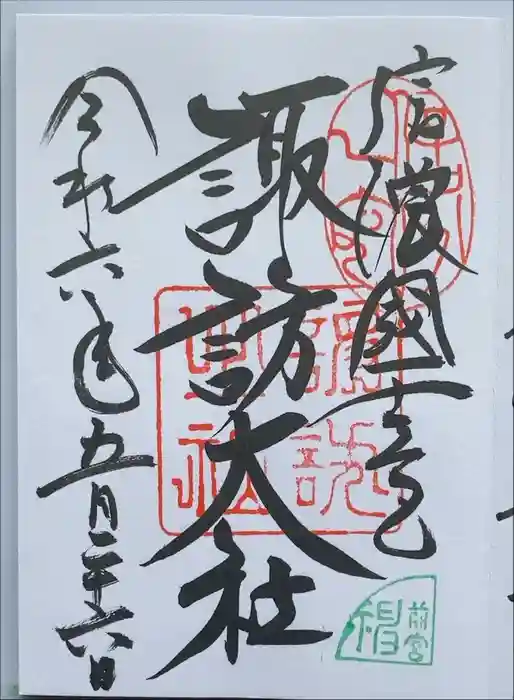 信濃國一之宮
諏訪大社
令和六年五月二十六日
前宮